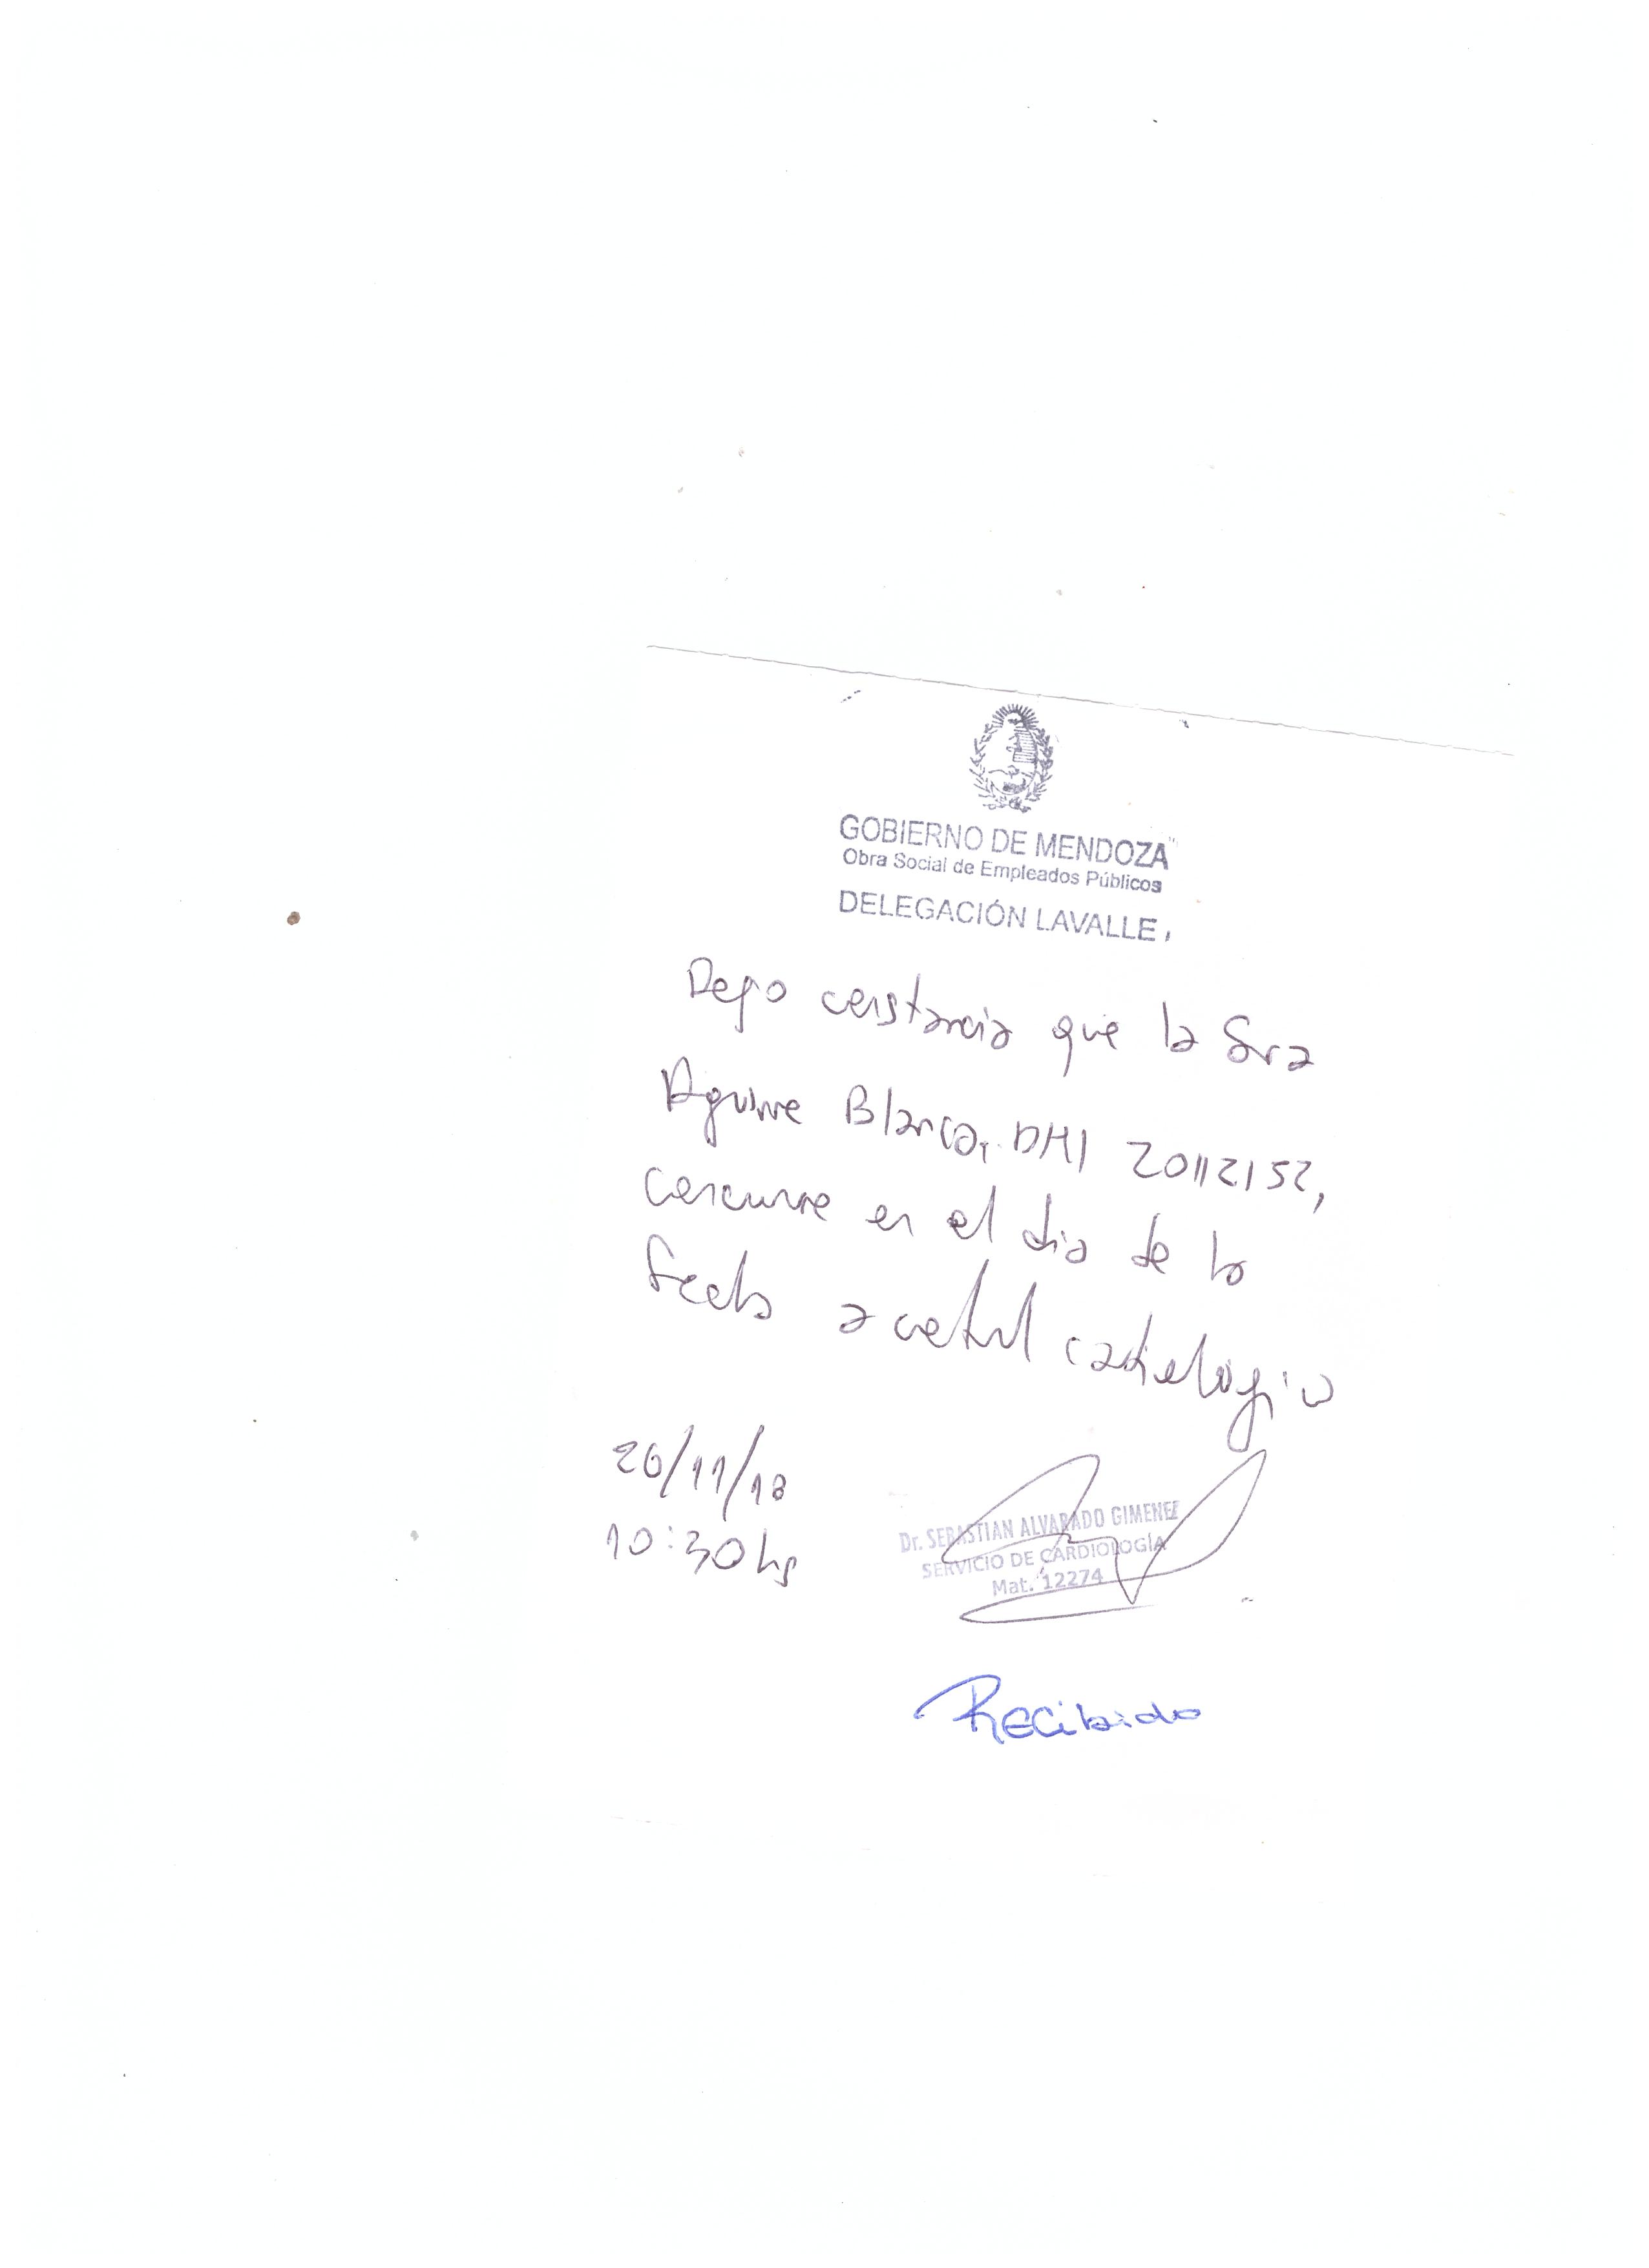 GOBIERNO DE MENDOZA
Obra Social de Empleados Públicos
DELEGACIÓN LAVALLE
Dejo constancia que la Sra
Aguirre Blanca, DNI 20112152,
concurre en el dia de la
fecha a control cardiologico
26/11/18
10:30 hs
Dr. SEBASTIAN ALVARADO GIMENEZ
SERVICIO DE CARDIOLOGÍA
Mat. 12274
Recibido